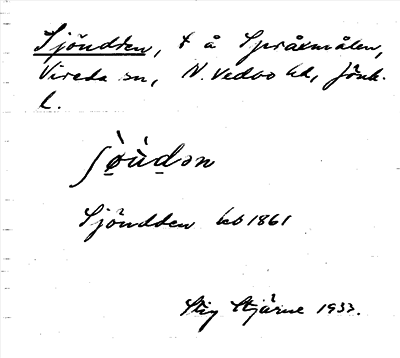 Sjöudden, t å Språxmålen,
Vireda sn, N. Vedbo hd, Jönk.
l.
ʃø̀ùdən
Sjöudden kb 1861
Stig Stjärne 1933.